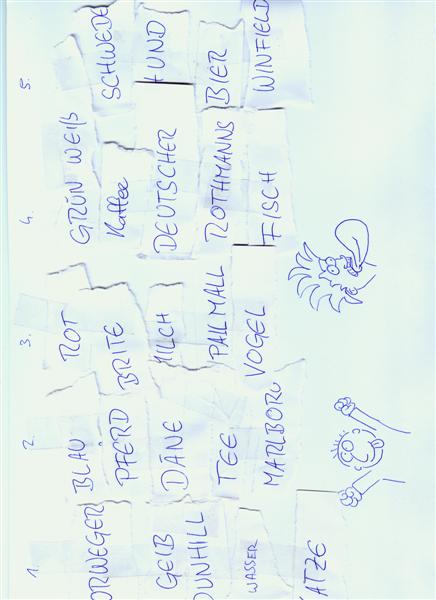 1 2. 3. 4. 5.
BLAU ROT GRÜN WEIß
ORWEGER PFERD BRITE Kaffee SCHWEDE
GELB DÄNE MILCH DEUTSCHER HUND
DUNHILL TEE PALL MALL ROTHMANNS BIER
WASSER MARLBORO VOGEL FISCH WINFIELD
ATZE